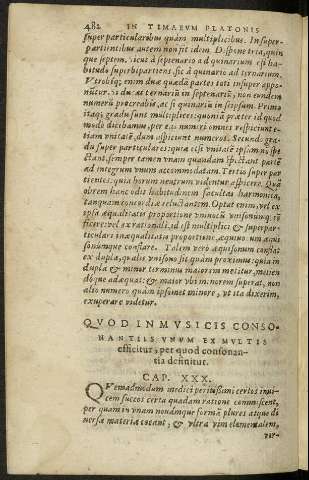 482 IN TIMAEVM PLATONIS
super particularibus quàm multiplicibus. In super-
partientibus autem non sit idem. Dispone tria, quin
que septem. sicut à septenario ad quinarium est ha-
bitudo superbipartiens, sic à quinario ad ternarium.
Vtrobiq; enim duæ quædã partes toti insuper appo-
nuntur. si duc ternariũ in septenariũ, non eundem
numerũ procreabis, ac si quinariũ in seipsum. Primo
itaq; gradu sunt multiplices: quoniã præter id quod
modò dicebamus, per numeri omnes respiciunt e-
tiam vnitatẽ, dum respiciunt numeros. Secundo gra-
du super particulares: quia etsi vnitatẽ ipsam nõ spe
ctant, semper tamen vnam quandam spectant partẽ
ad integrum vnum accommodatam. Tertio super par
tientes: quia horum neutrum videntur aspicere. Quã
obrem hanc odit habitudinem facultas harmonica,
tanquam concordiæ reluctantem. Optat enim, vel ex
ipsa æqualitatis proportione vnius
ficere: vel ex rationali, id est multiplici & superpar-
ticulari inæqualitatis proportione, æquiuo num æqui
sonumque conflare. Talem verò æquisonum conflat
ex dupla, qualis vnisono fit quàm proximus: quia in
dupla & minor terminus maiorem metitur, maio
dóque adæquat: & maior vbi minorem superat, non
alio numero quàm ipsomet minore, vt ita dixerim,
exuperare videtur.
QVOD IN MVSICIS CONSO-
NANTIIS VNVM EX MVLTIS
efficitur, per quod consonan-
tia definitur.
CAP. XXX.
QVemadmodum medici peritissimi certos inui-
cem succos certa quadam ratione commiscent,
per quam in vnam nouámque formã plures atque di
uersæ materiæ coeant, & vltra vim elementalem,